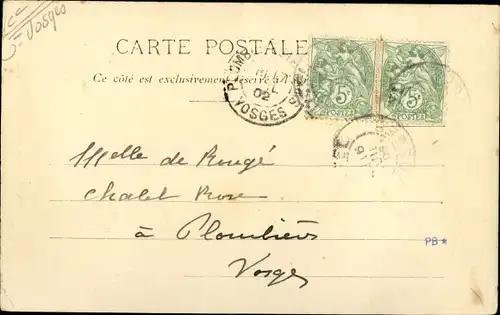 Vosges
CARTE POSTALE
Ce côté est exclusivement réservé à
PLOMB
02
VOSGES
5c 5c
POSTES POSTES
Melle de Rougé
Chalet Rose
à Plombières
Vosges
PB *